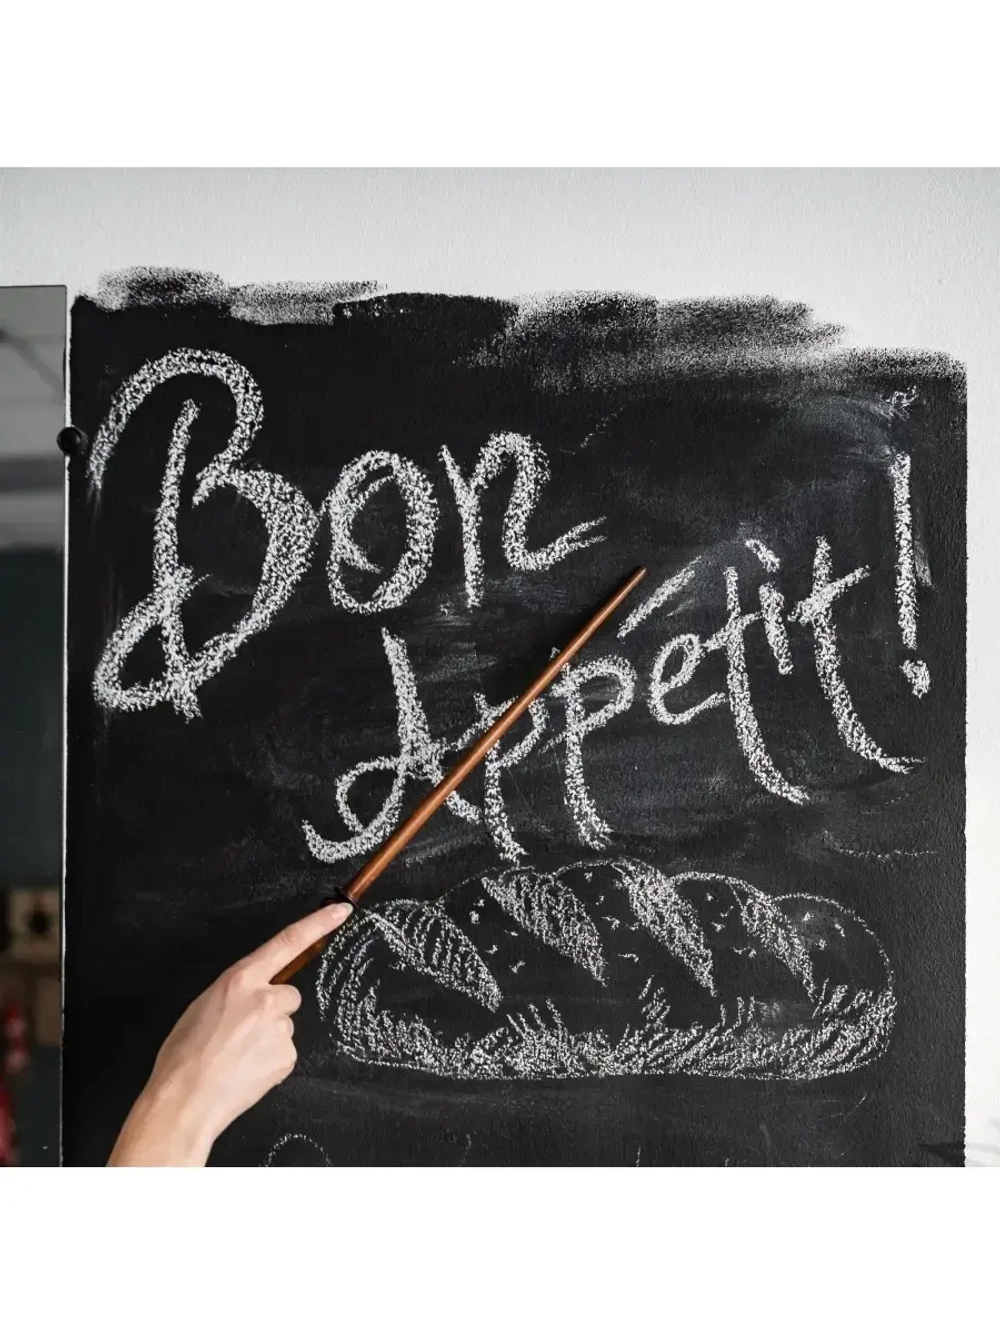 Bon
Appetit!